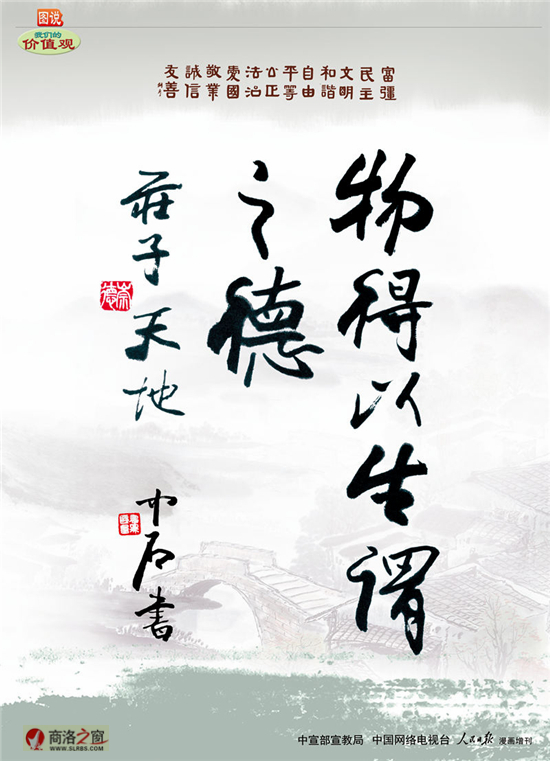 图说
我们的
价值观
富强
民主
文明
和諧
自由
平等
公正
法治
爱國
敬業
誠信
友善
物得以生謂
之德
莊子天地
崇德
中石書
商洛之窗
WWW.SLRBS.COM
中宣部宣教局 中国网络电视台 人民日报 漫画增刊